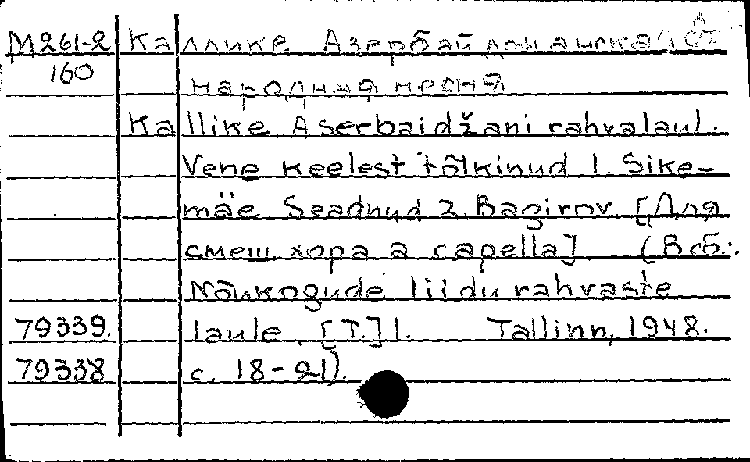 М261-2 Каллике Азербайджанская
160 народная песня
Kallike Aserbaidžani rahvalaul.
Vene keelest tõlkinud I. Sike-
mäe Seadnud Z. Bagirov. [Для
смеш. хора a capella]. (В сб.:
Nõukogude liidu rahvaste
79339. laule. [T.] I. Tallinn, 1948.
79338 с. 18-21).